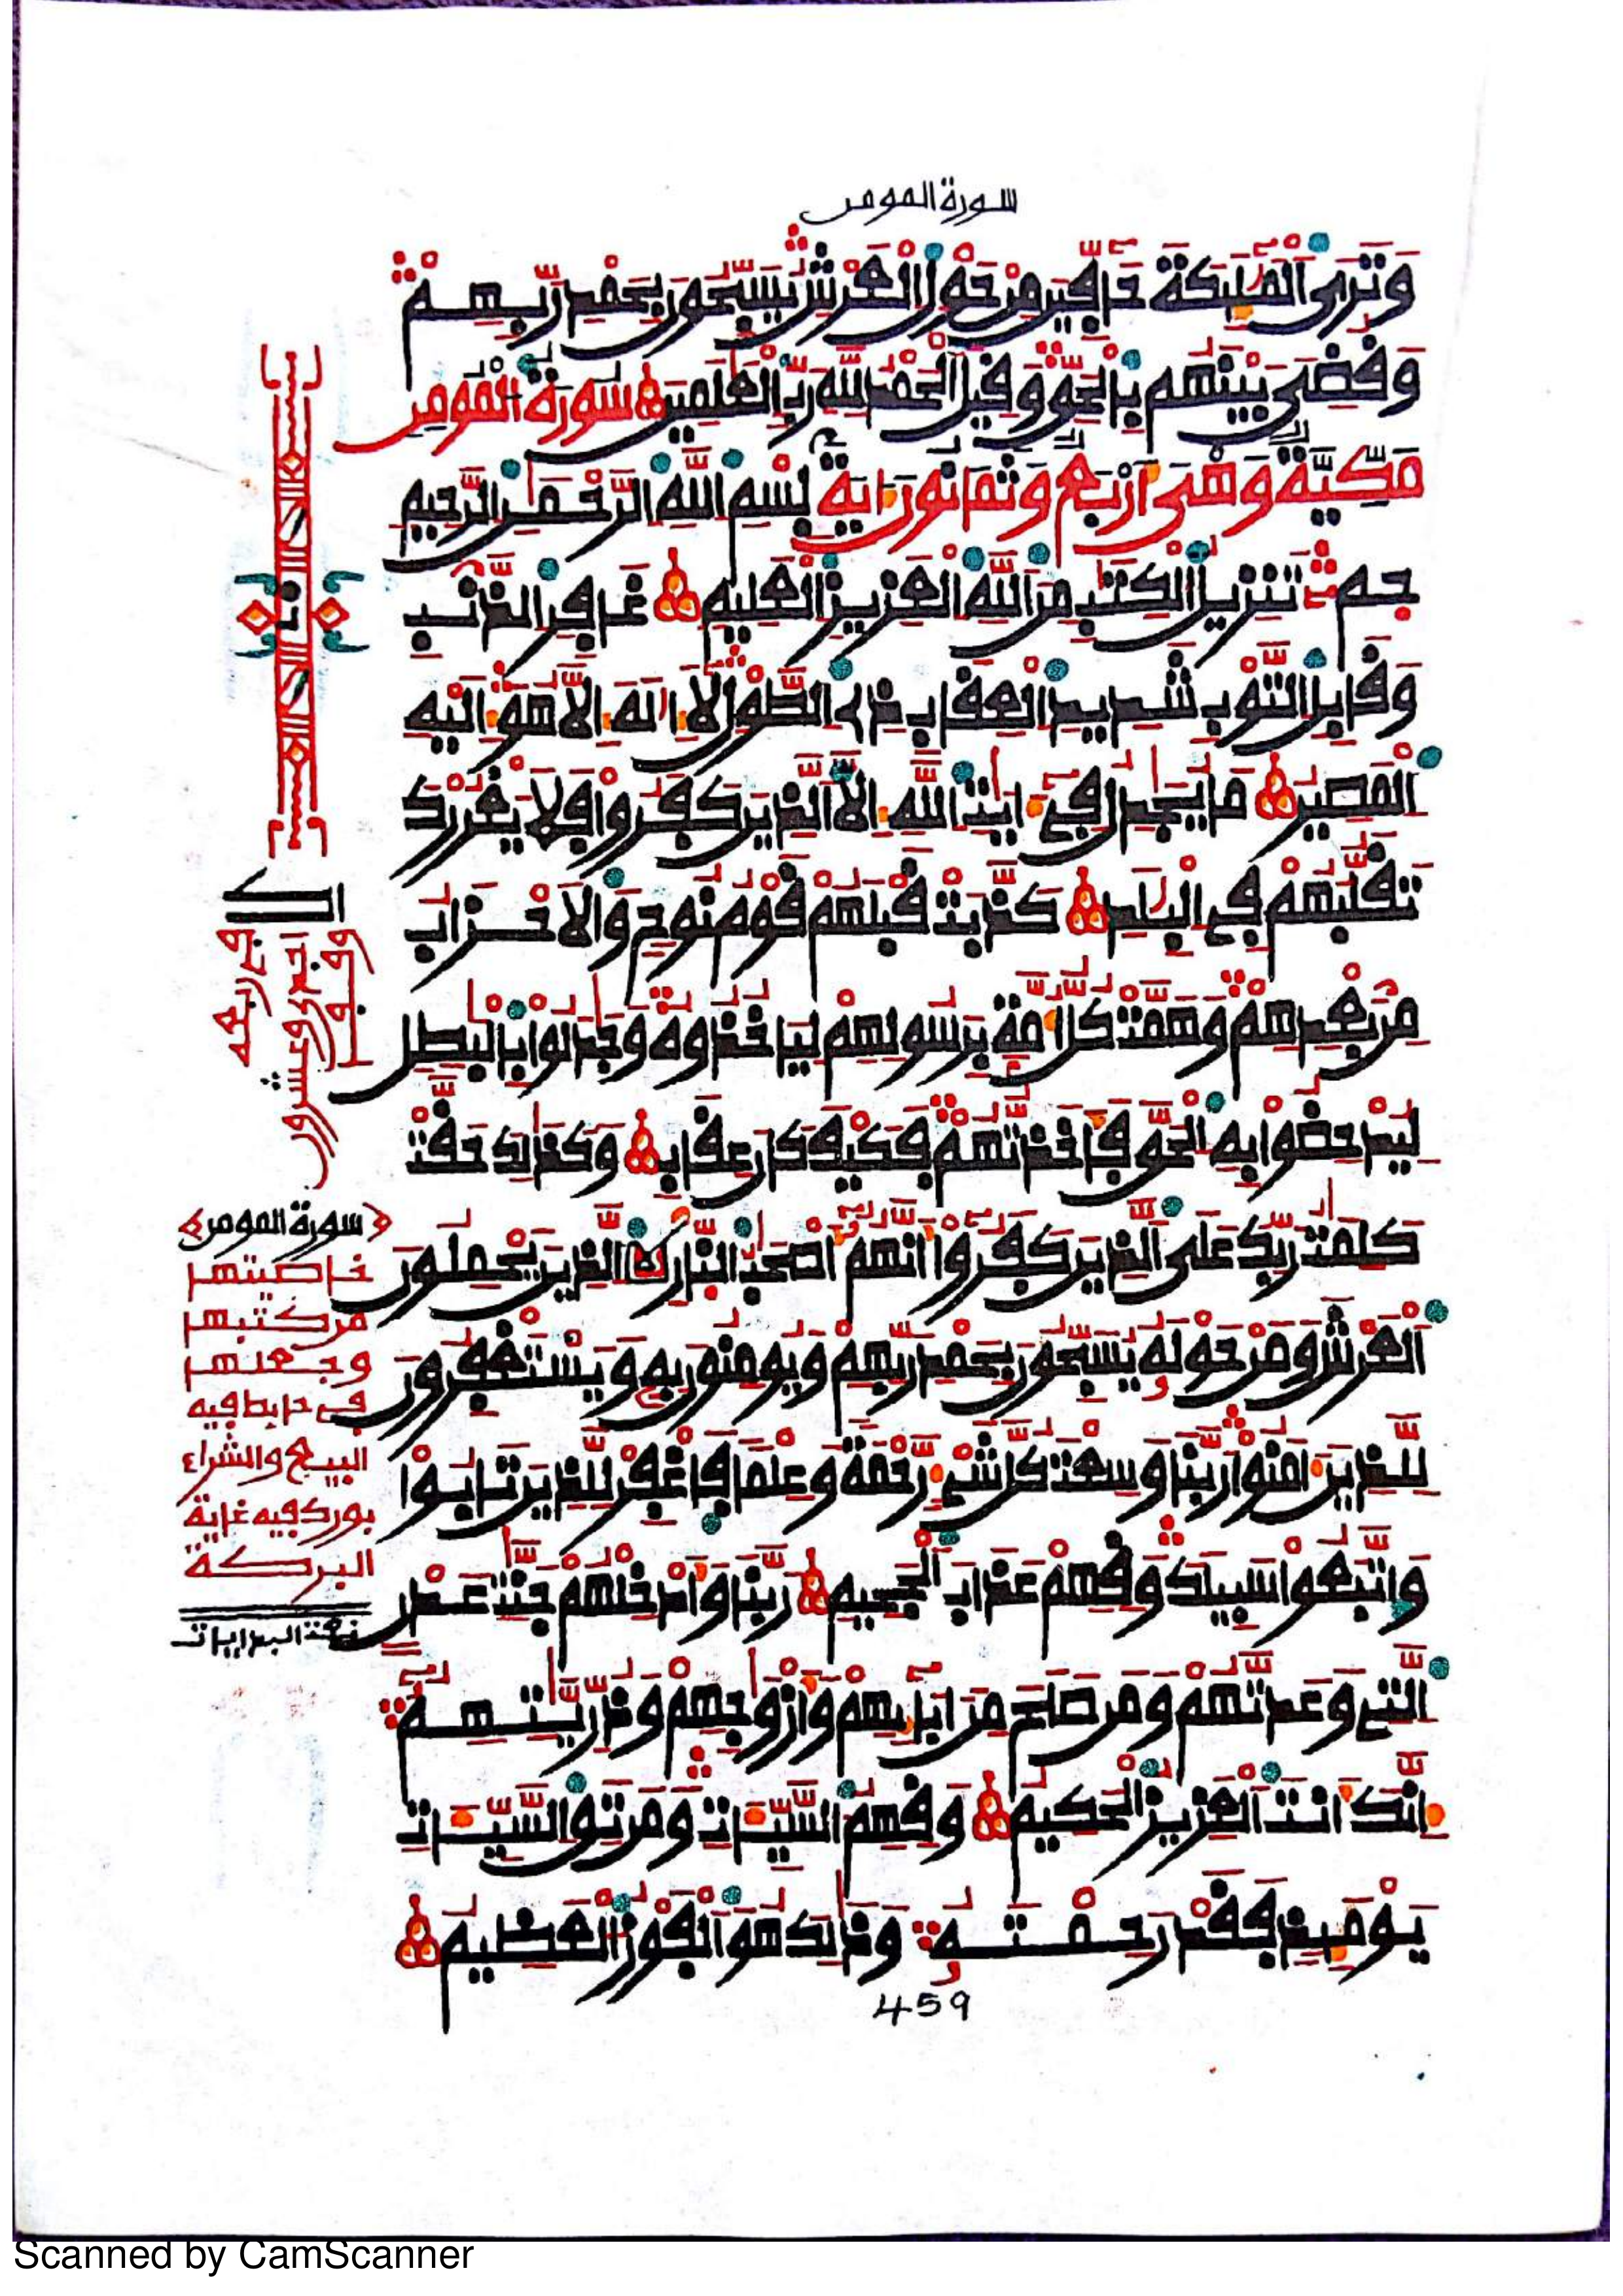 سورة المومن
وَتَرَى ٱلْمَلَٰٓئِكَةَ حَآفِّينَ مِنْ حَوْلِ ٱلْعَرْشِ يُسَبِّحُونَ بِحَمْدِ رَبِّهِمْ
وَقُضِيَ بَيْنَهُم بِٱلْحَقِّ وَقِيلَ ٱلْحَمْدُ لِلهِ رَبِّ ٱلْعَٰلَمِينَ سُورَةُ ٱلْمُومِنِ
مَكِّيَّةٌ وَهْىَ أَرْبَعٌ وَثَمَانُونَ ءَايَةً بِسْمِ ٱللَّهِ ٱلرَّحْمَٰنِ ٱلرَّحِيمِ
حم تَنزِيلُ ٱلْكِتَٰبِ مِنَ ٱللَّهِ ٱلْعَزِيزِ ٱلْعَلِيمِ غَافِرِ ٱلذَّنۢبِ
وَقَابِلِ ٱلتَّوْبِ شَدِيدِ ٱلْعِقَابِ ذِى ٱلطَّوْلِ لَآ إِلَٰهَ إِلَّا هُوَ إِلَيْهِ
ٱلْمَصِيرُ مَا يُجَٰدِلُ فِىٓ ءَايَٰتِ ٱللَّهِ إِلَّا ٱلَّذِينَ كَفَرُوا۟ فَلَا يَغْرُرْكَ
تَقَلُّبُهُمْ فِى ٱلْبِلَٰدِ كَذَّبَتْ قَبْلَهُمْ قَوْمُ نُوحٍ وَٱلْأَحْزَابُ
مِنۢ بَعْدِهِمْ وَهَمَّتْ كُلُّ أُمَّةٍۭ بِرَسُولِهِمْ لِيَأْخُذُوهُ وَجَٰدَلُوا۟ بِٱلْبَٰطِلِ
لِيُدْحِضُوا۟ بِهِ ٱلْحَقَّ فَأَخَذتُّهُمْ فَكَيْفَ كَانَ عِقَابِ وَكَذَٰلِكَ حَقَّتْ
كَلِمَٰتُ رَبِّكَ عَلَى ٱلَّذِينَ كَفَرُوٓا۟ أَنَّهُمْ أَصْحَٰبُ ٱلنَّارِ ٱلَّذِينَ يَحْمِلُونَ
ٱلْعَرْشَ وَمَنْ حَوْلَهُۥ يُسَبِّحُونَ بِحَمْدِ رَبِّهِمْ وَيُومِنُونَ بِهِۦ وَيَسْتَغْفِرُونَ
لِلَّذِينَ ءَامَنُوا۟ رَبَّنَا وَسِعْتَ كُلَّ شَىْءٍ رَّحْمَةً وَعِلْمًا فَٱغْفِرْ لِلَّذِينَ تَابُوا۟
وَٱتَّبَعُوا۟ سَبِيلَكَ وَقِهِمْ عَذَابَ ٱلْجَحِيمِ رَبَّنَا وَأَدْخِلْهُمْ جَنَّٰتِ عَدْنٍ
ٱلَّتِى وَعَدتَّهُمْ وَمَن صَلَحَ مِنْ ءَابَآئِهِمْ وَأَزْوَٰجِهِمْ وَذُرِّيَّٰتِهِمْ
إِنَّكَ أَنتَ ٱلْعَزِيزُ ٱلْحَكِيمُ وَقِهِمُ ٱلسَّيِّـَٔاتِ وَمَن تَقِ ٱلسَّيِّـَٔاتِ
يَوْمَئِذٍ فَقَدْ رَحِمْتَهُۥ وَذَٰلِكَ هُوَ ٱلْفَوْزُ ٱلْعَظِيمُ
459
سورة المومن
خاصيتها
من كتبها
وجعلها
في حايط فيه
البيع والشراء
بورك فيه غاية
البركة
Scanned by CamScanner